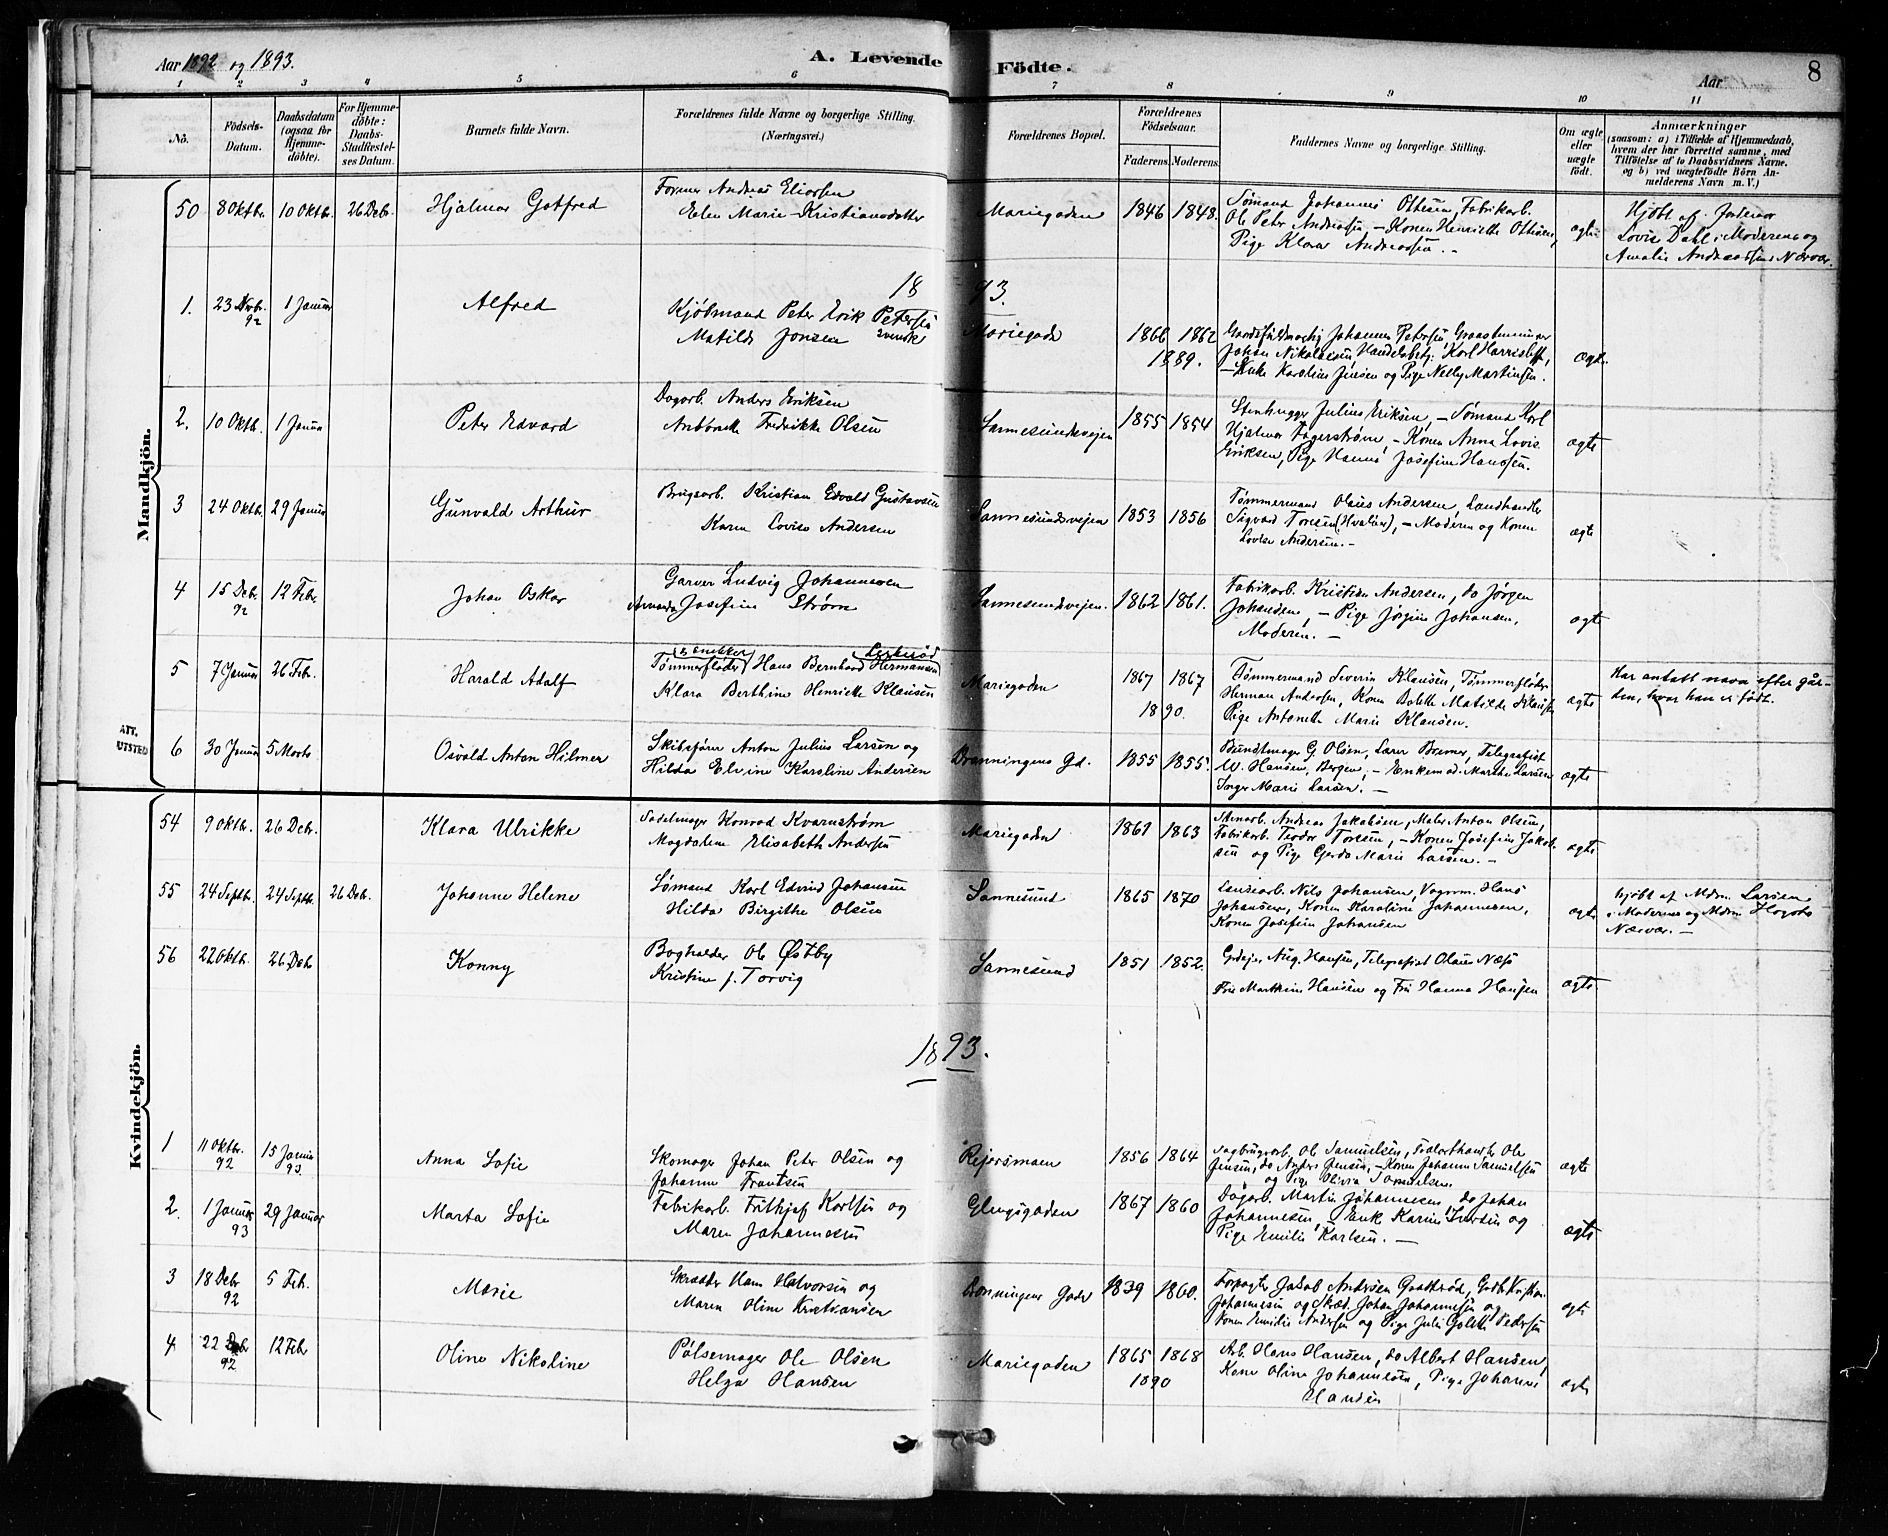 Aar 1892 og 1893.
A. Levende Födte.
Aar
8
1 2 3 4 5 6 7 8 9 10 11
No.
Födsels-Datum.
Daabsdatum (ogsaa for Hjemme-döbte).
For Hjemme-döbte: Daabs-Stadfæstel-ses Datum.
Barnets fulde Navn.
Forældrenes fulde Navne og borgerlige Stilling.
(Næringsvei.)
Forældrenes Bopæl.
Forældrenes Födselsaar.
Faderens. Moderens.
Faddernes Navne og borgerlige Stilling.
Om ægte eller uægte födt.
Anmærkninger
(saasom: a) i Tilfælde af Hjemmedaab, hvem der har forrettet samme, med Tilföielse af to Daabsvidners Navne. og b) ved uægtefödte Börn An-melderens Navn m. V.)
Mandkjön.
50 8 Oktb. 10 Oktb. 26 Debr. Hjalmar Gotfred
Former Andreas Eliassen
Elen Marie Kristiansdatter
Mariegaden 1846 1848.
Sømand Johannes Ottesen, Fabrikarb.
Ole Peter Andreassen, – Konen Henriette Ottesen,
Pige Klara Andreassen. –
ægte
Hjdbt af Jordmor
Lovise Dahl i Moderens og
Amalie Andreassens Nærvær.
1893.
1. 23 Novbr. 92 1 Januar Alfred
Kjøbmand Peter Erik Petersen
Matilde Jonsen svenske
Mariegade 1866 1862
1889.
Gaardsfuldmægtig Johannes Petersen
Johan Nikolaisen, Handelsbetj. Karl
– Enke Karoline Jensen og Pige Nelly Martinsen.
ægte
2. 10 Oktb. 1 Janua Peter Edvard
Dagarb. Anders Eriksen
Fredrikke Olsen
Sannesundsveien 1855 1854
Stenhugger Julius Eriksen, – Sømand Karl
Hjalmar Fagerstrøm, – Konen Anna Lovise
Eriksen, Pige Hanna Josefine Hansen.
ægte
3 24 Oktb. 29 Janua Gunvald Arthur
Brugsarb. Kristian Edvald Gustavsen
Karen Lovise Andersen
Sannesundsvejen 1853 1856
Tømmermand Olaus Andersen, Landhandler
Sigvard Torsen (Hvaler), – Moderen og Konen
Lovise Andersen. –
ægte
4 15 Debr. 92 12 Febr. Johan Oskar
Garver Ludvig Johannesen
Amanda Josefine Strøm
Sannesundsvejen. 1862 1861.
Fabrikarb. Kristian Andersen, do Jørgen
Johansen, – Pige Jørgine Johansen,
Moderen. –
ægte
5 7 Januar 26 Febr. Harald Adolf
snekker
Tømmerfløder Hans Bernhard Hermansen
Klara Berthine Henriette Klausen
Mariegaden 1867 1867
1890.
Tømmermand Severin Klausen, Tømmerfløder
Herman Andersen, Konen Bolette Matilde Klausen
Pige Antonette Marie Klausen.
ægte
Har antatt navn efter går-
den, hvor han er født.
ATT. UTSTED
6 30 Januar 5 Marts Osvald Anton Hilmer
Skibsfører Anton Julius Larsen og
Hilda Elvine Karoline Andersen
Dronningens Gd. 1855 1855.
Bundtmager G Olsen, Lærer Bremer, Telegrafist
W. Hansen, Bergen, – Enkemad. Marthe Larsen
Inger Marie Larsen. –
ægte
Kvindekjön.
54 9 Oktb. 26 Debr. Klara Ulrikke
Sadelmager Konrad Kvarnstrøm
Magdalene Elisabeth Andersen
Mariegaden 1861 1863
Stenarb. Andreas Jakobsen, Maler Anton Olsen,
Fabrikarb. Teodor Torsen, – Konen Josefine Jakob-
sen og Pige Gerda Marie Larsen. –
ægte
55 24 Septb. 24 Septb. 26 Deb. Johanne Helene
Sømand Karl Edvind Johansen
Hilda Birgithe Olsen
Sannesund 1865 1870
Nils Johansen, Vognm. Hans
Johansen, Konen Karoline Johannesen,
Konen Josefine Johansen
ægte
hjdbt af Mdm. Larsen
i Moderens og Mdm
Nærvær. –
56 22 Oktb. 26 Deb Konny
Bogholder Ole Østby
Kristine f. Torvig
Sannesund 1851 1852.
Gdejer Aug. Hansen, Telegrafist Olaus Næss
Fru Marthine Hansen og Fru Hanna Hansen
ægte
1893.
1 11 Oktbr. 92 15 Janua 93. Anna Sofie
Skomager Johan Peter Olsen og
Johanne Frantsen
Rejersmoen 1856 1864
Sagbrugsarb. Ole Samuelsen, Ole
Jensen, do Anders Jensen, – Konen Johanne Samuelsen
og Pige Olivia Samuelsen
ægte
2. 1 Januar 93 29 Januar Marta Sofie
Fabrikarb. Frithjof Karlsen og
Maren Johannesen
Glengsgaden 1867 1860
Dagarb. Martin Johannesen, do Johan
Johannesen, – Enk Karine Iversen og
Pige Emilie Karlsen. –
ægte
3 18 Debr 92 5 Feb. Marie
Skrædder Hans Halvorsen og
Maren Oline Kristiansen
Dronningens Gade 1839 1860.
Forpagter Jakob Andersen
Johannesen og Skræd. Johan Johannesen og
Konen Emilie Andersen og Pige Julie Pedersen
ægte
4 22 Debr 92 12 Febr Oline Nikoline
Pølsemager Ole Olsen
Helga Hansen
Mariegaden 1865 1868
1890
Arb. Hans Hansen, do Albert Hansen,
Kone Oline Johannesen, Pige Johanne
Hansen
ægte